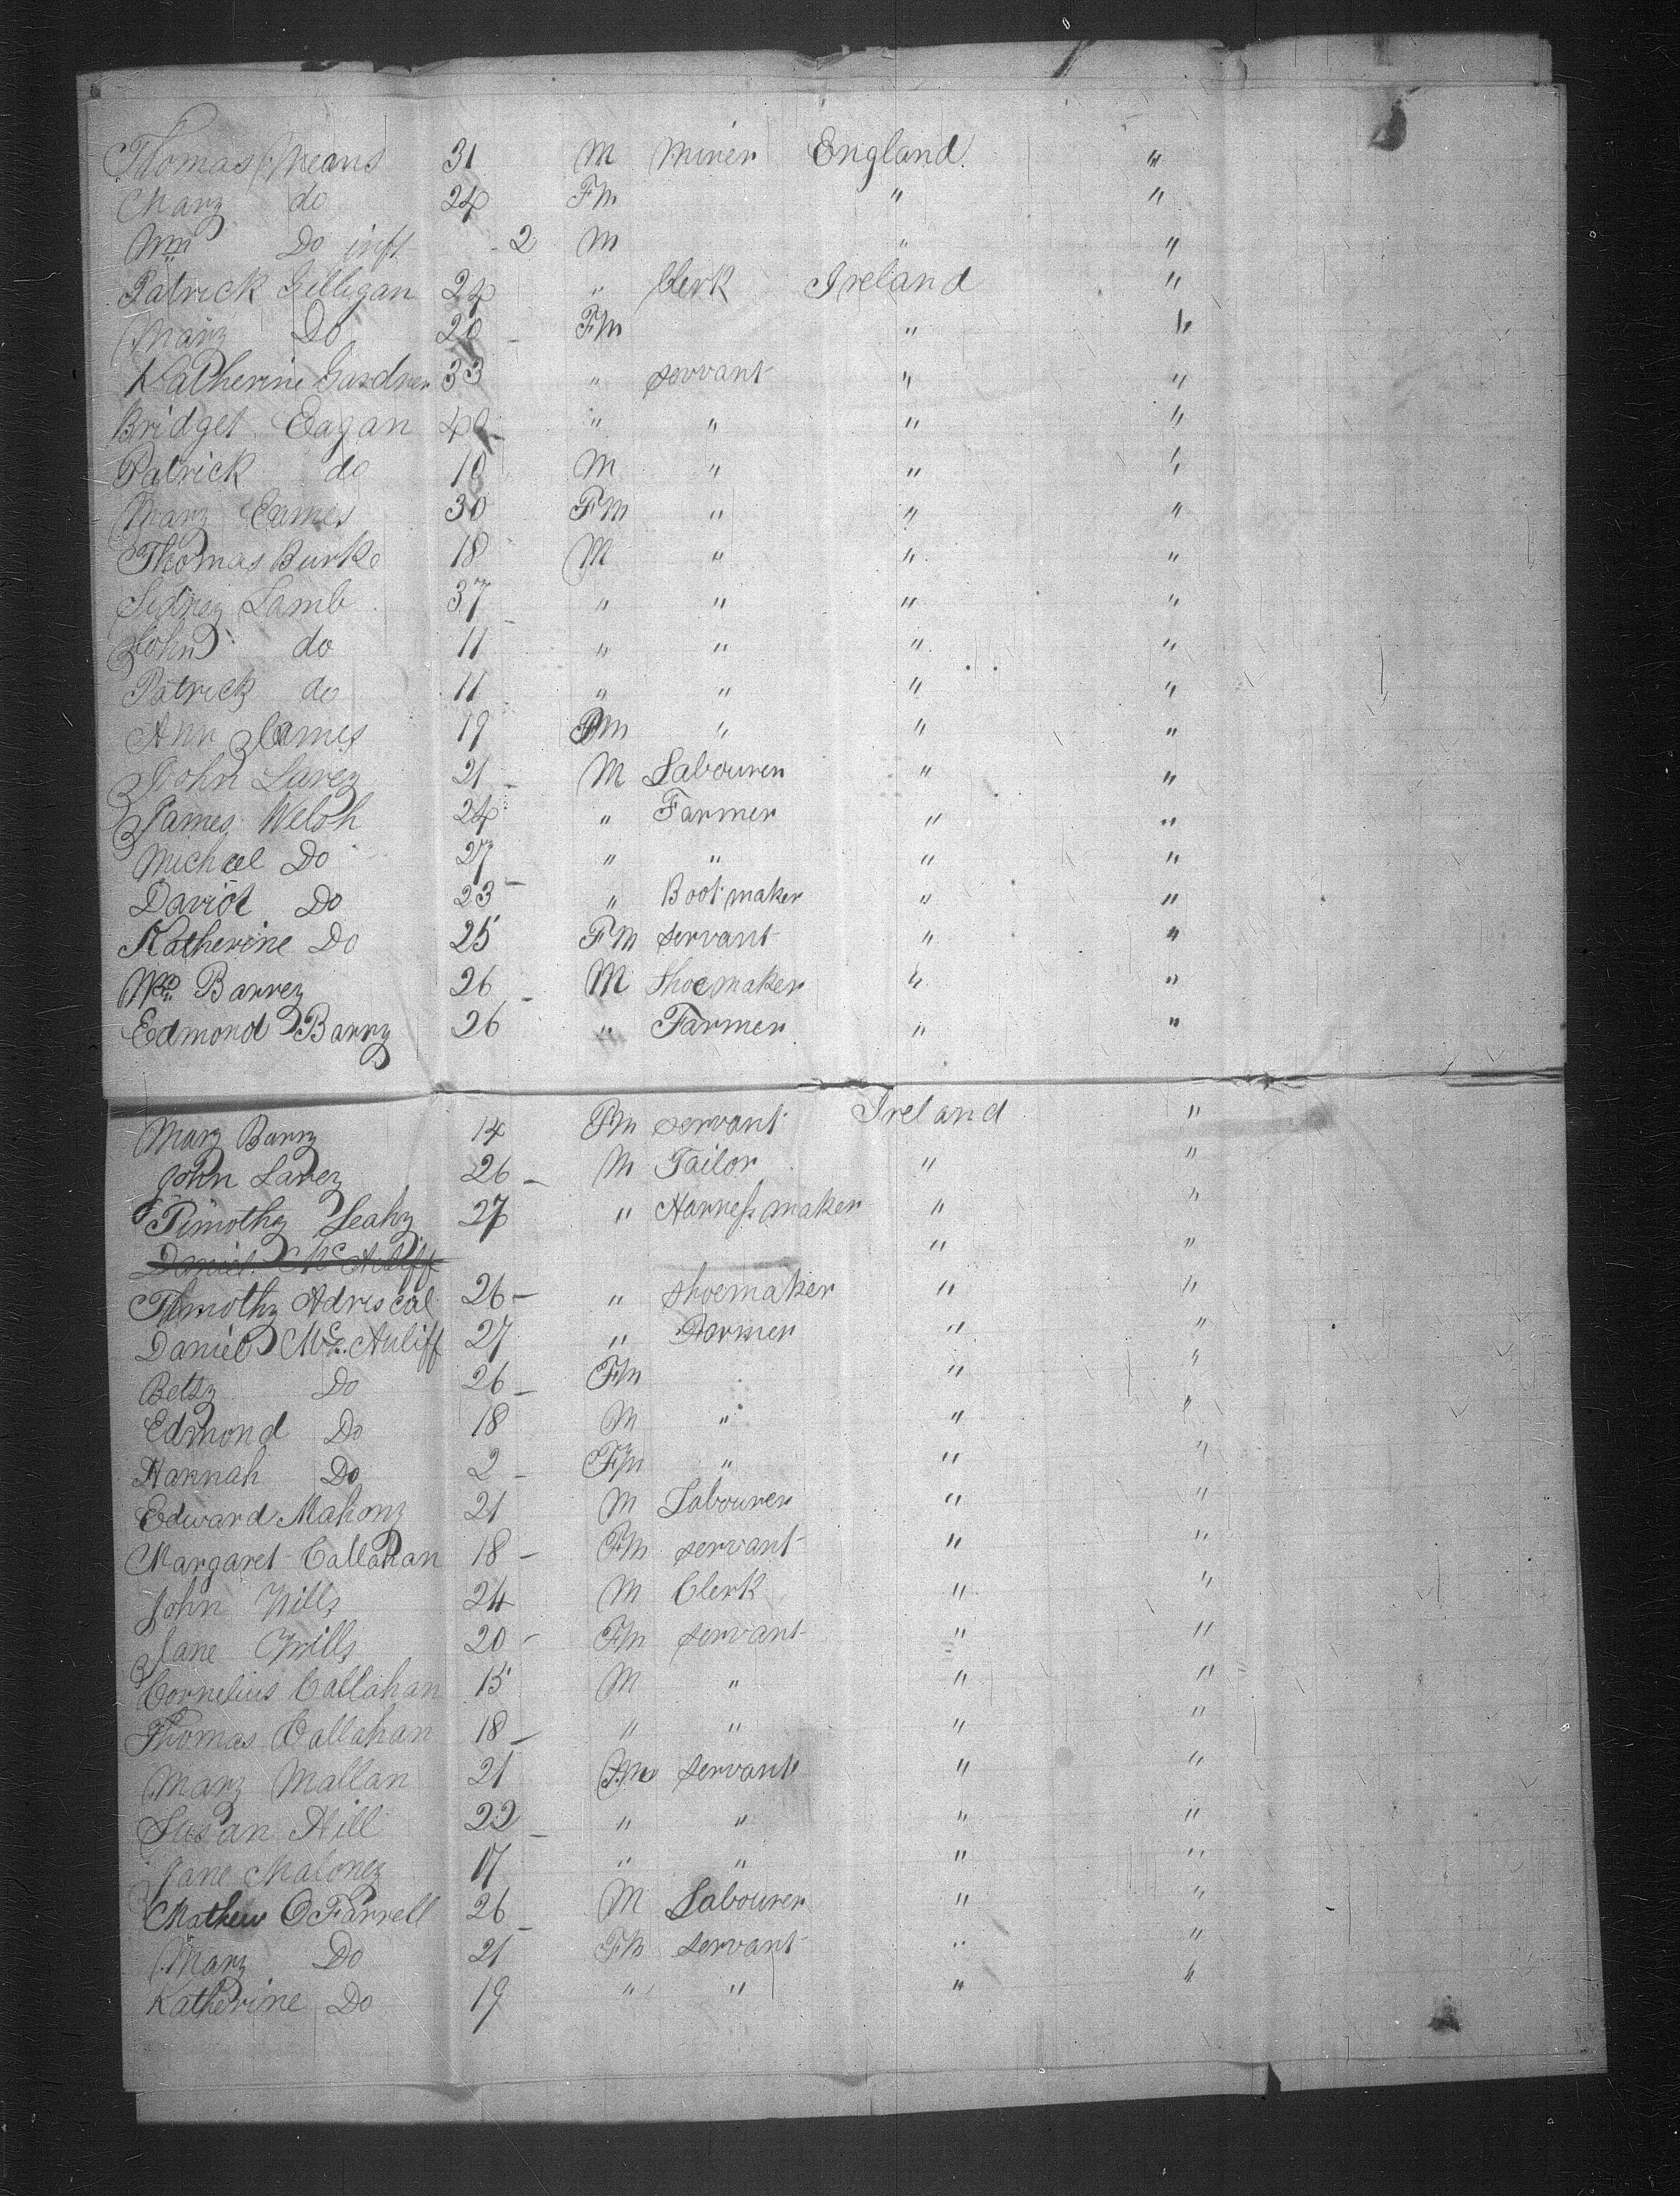 Thomas Means 31 M Miner England "
Mary do 24 Fm " "
Wm Do inft 2 M " "
Patrick Gilligan 24 " Clerk Ireland "
Mary Do 20 Fm " "
Katherine Gardner 33 " servant " "
Bridget Eagan 40 " " " "
Patrick do 10 M " " "
Mary Eames 30 Fm " " "
Thomas Burke 18 M " " "
Sidney Lamb 37 " " " "
John do 11 " " " "
Patrick do 11 " " " "
Ann Eames 19 Fm " " "
John Lavey 21 M Labourer " "
James Welsh 24 " Farmer " "
Michael Do 27 " " " "
David Do 23 " Boot maker " "
Katherine Do 25 Fm servant " "
Wm Barrey 26 M Shoemaker " "
Edmond Barry 26 " Farmer " "
Mary Barry 14 Fm servant Ireland "
John Lavey 26 M Tailor " "
Timothy Leahy 27 " Harness maker " "
Daniel Mc Auliff " "
Timothy Adriscal 26 " shoemaker " "
Daniel Mc Auliff 27 " Farmer " "
Betsy Do 26 Fm " "
Edmond Do 18 M " " "
Hannah Do 2 Fm " " "
Edward Mahony 21 M Labourer " "
Margaret Callahan 18 Fm servant " "
John Wills 24 M Clerk " "
Jane Wills 20 Fm servant " "
Cornelius Callahan 15 M " " "
Thomas Callahan 18 " " " "
Mary Mallan 21 Fm servant " "
Susan Hill 22 " " " "
Jane Maloney 17 " " " "
Mathew O Farrell 26 M Labourer " "
Mary Do 21 Fm servant " "
Katherine Do 19 " " " "